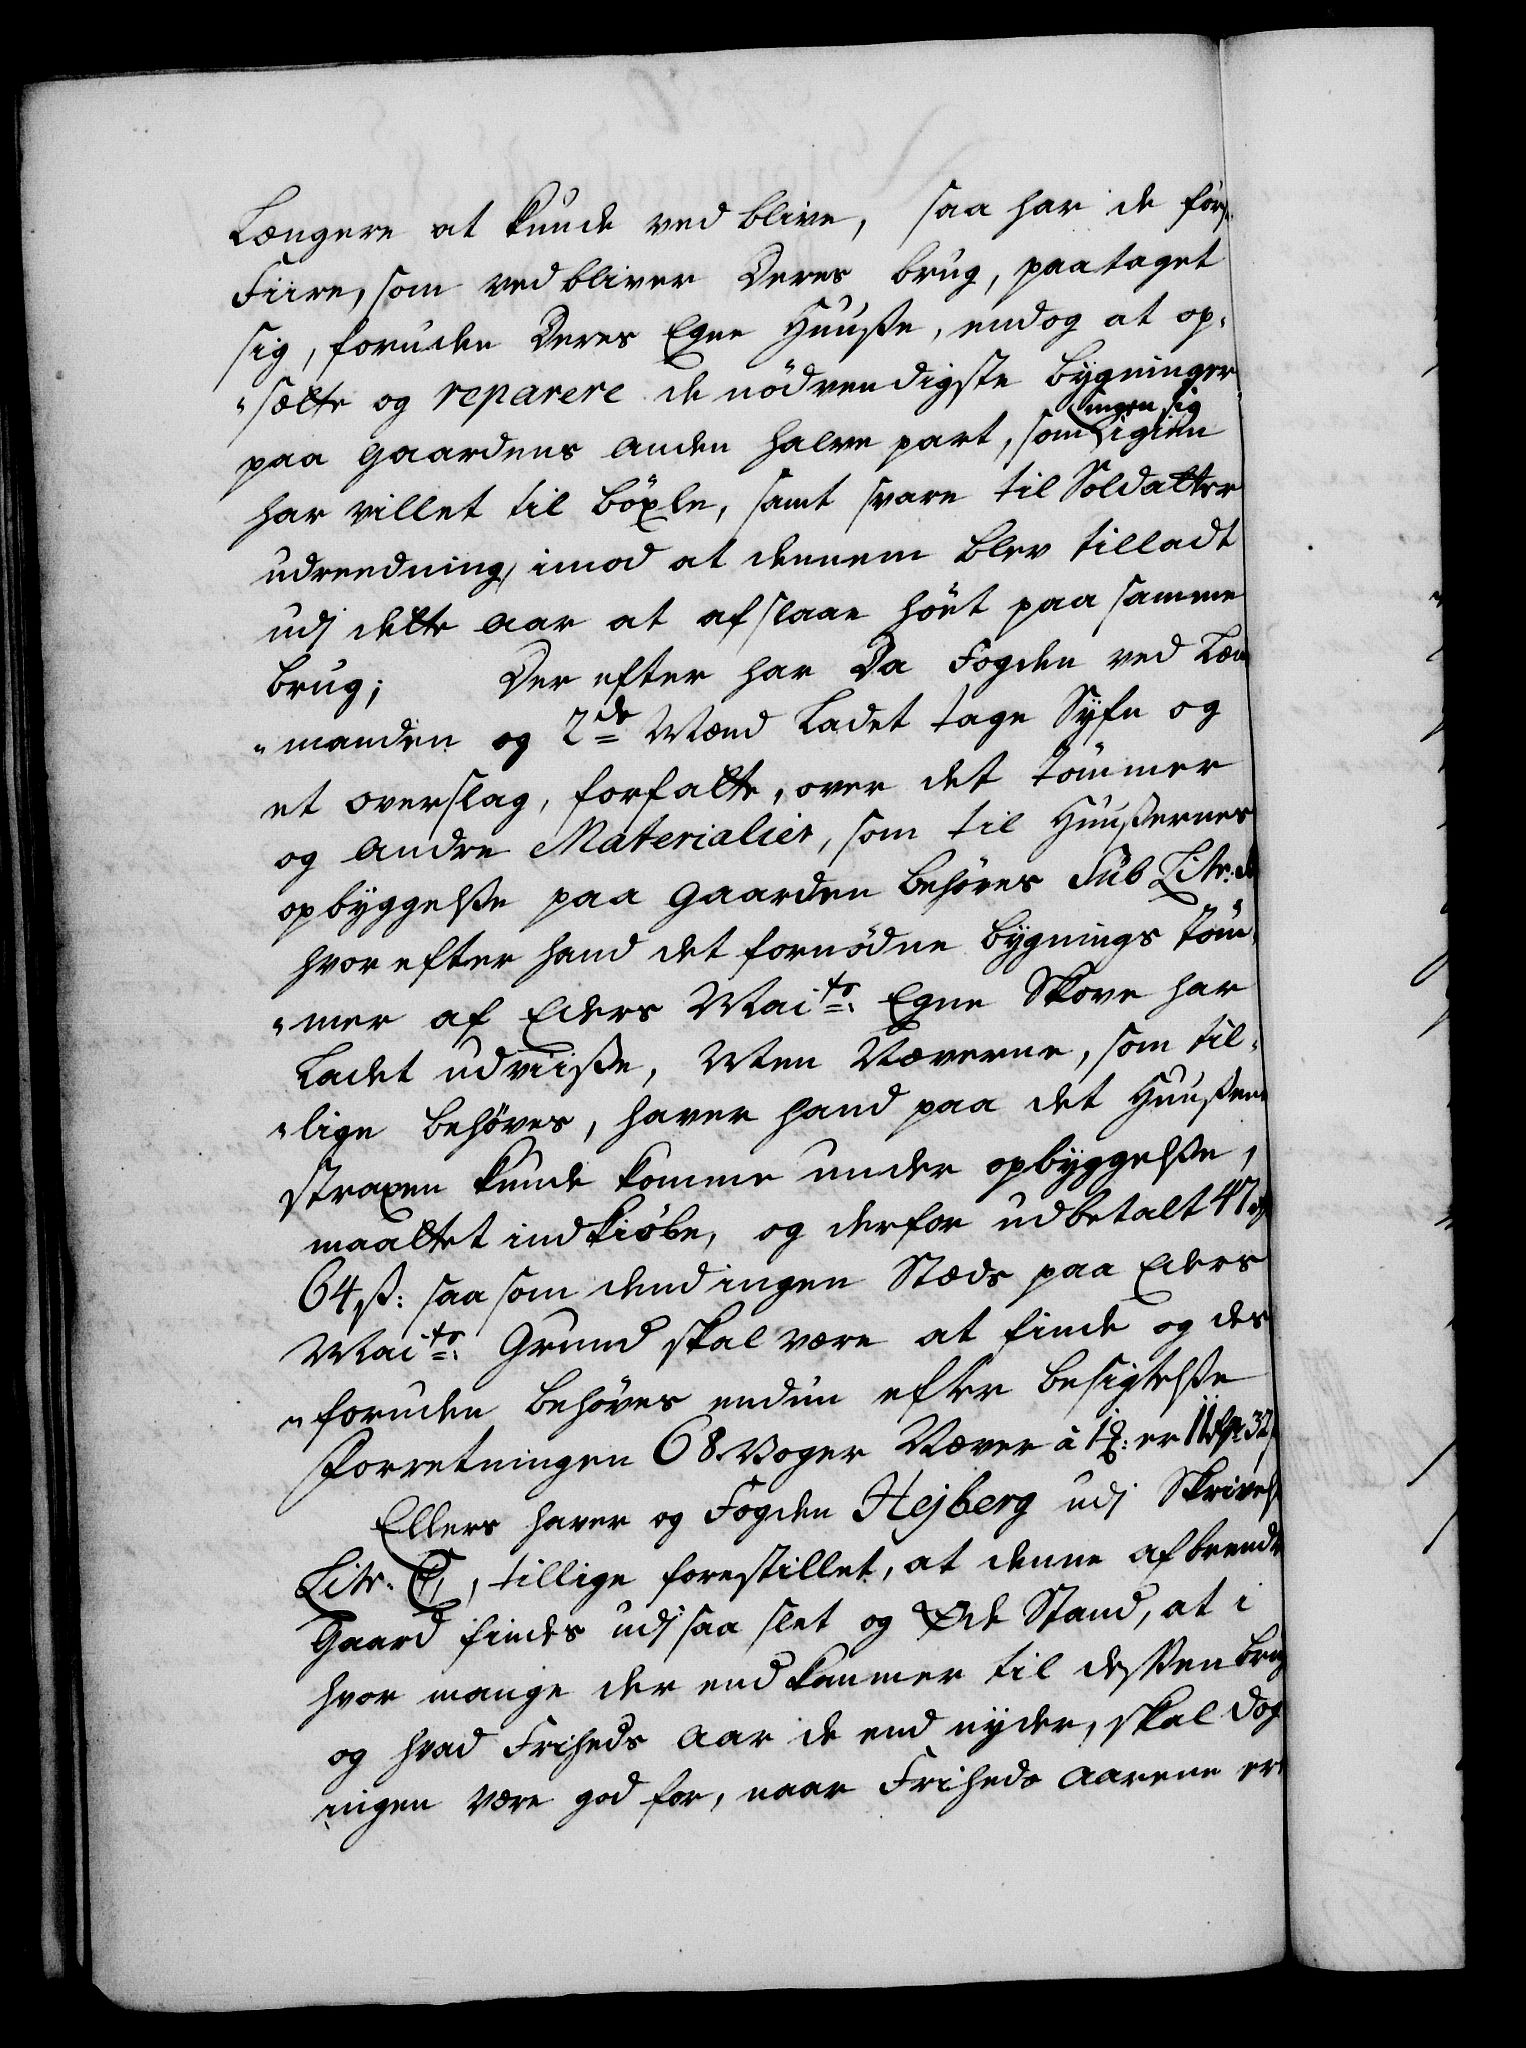 Længere at kunde ved blive, saa har de förs.
Fiire, som ved bliver Deres brug, paataget
sig, foruden Deres Egne Huuße, endog at op,
"sætte og reparere de nödvendigste bÿgninger
paa gaardens anden halve part, som ingen sig igien
har villet til böxle, samt svare til Soldatter
udreedning, imod at dennem blev tilladt
udj dette aar at afslaae höet paa samme
brug; Der efter har Da Fogden ved Læn
"manden og 2de Mænd Ladet tage Sÿfn og
et overslag, forfatte, over det tömmer
og andre Materialier, som til Huußernes
opbÿggelße paa gaarden behöves Sub Litr:
hvor efter hand det fornödne bÿgnings töm,
"mer af Eders Maits: Egne Skove har
Ladet udviiße, Men Næverne, som til,
"lige behöves, haver hand paa det Huußene
straxen kunde komme under opbÿggelße,
maattet indkiöbe, og derfor udbetalt 47
64 ß: saa som dend ingen Stæds paa Eders
Maits: Grund skal være at finde og des
"foruden behöves endnu efter besigtelße
Forretningen 68 Voger Næver à 1: er 11 32
Ellers haver og Fogden Hejberg udj Skrivels
Litr. , tillige forestillet, at denne afbrendte
Gaard findes udj saa slet og Øde Stand, at i
hvor mange der end kommer til dessen brug
og hvad Friheds aar de end nÿder, skal dog
ingen være god for, naar Friheds aarene er